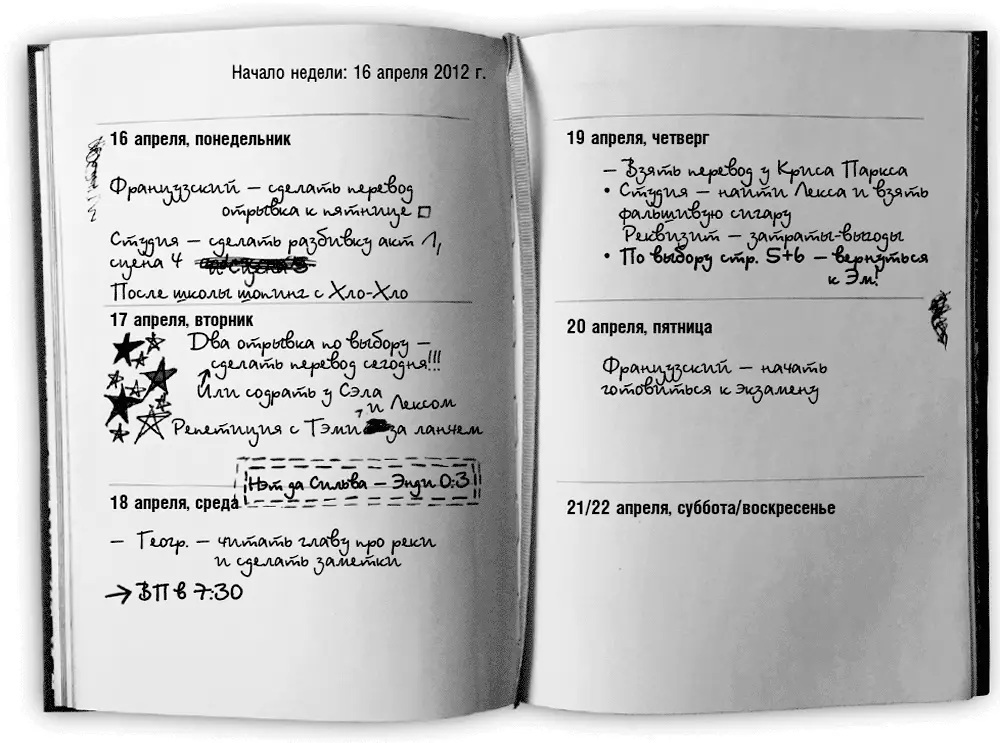 Начало недели: 16 апреля 2012 г.
16 апреля, понедельник
Французский – сделать перевод
отрывка к пятнице
Студия – сделать разбивку акт 1,
сцена 4
После школы шопинг с Хло-Хло
17 апреля, вторник
Два отрывка по выбору –
сделать перевод сегодня!!!
Или содрать у Сэла
и Лексом
Репетиция с Тэми за ланчем
Нэт да Сильва – Энди 0:3
18 апреля, среда
– Геогр. – читать главу про реки
и сделать заметки
→ ВП в 7:30
19 апреля, четверг
– Взять перевод у Криса Паркса
• Студия – найти Лекса и взять
фальшивую сигару
Реквизит – затраты-выгоды
• По выбору стр. 5+6 – вернуться
к Эм!
20 апреля, пятница
Французский – начать
готовиться к экзамену
21/22 апреля, суббота/воскресенье